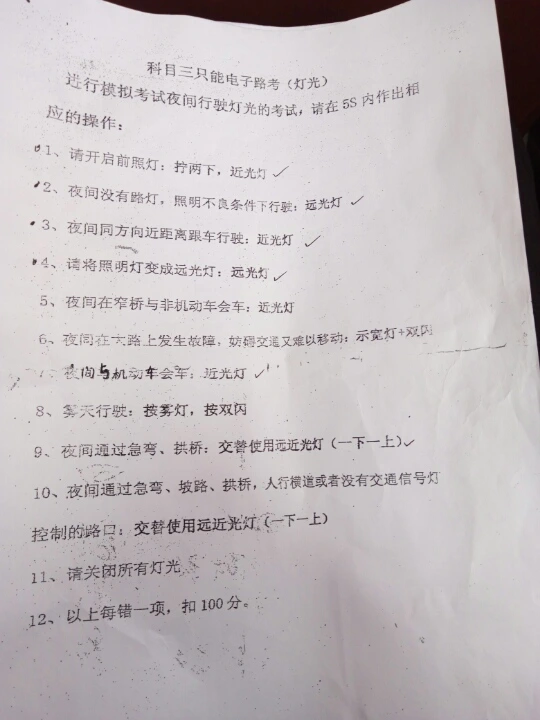 科目三只能电子路考（灯光）
进行模拟考试夜间行驶灯光的考试，请在5S内作出相
应的操作：
1、请开启前照灯：拧两下，近光灯✓
2、夜间没有路灯，照明不良条件下行驶：远光灯✓
3、夜间同方向近距离跟车行驶：近光灯✓
4、请将照明灯变成远光灯：远光灯✓
5、夜间在窄桥与非机动车会车：近光灯
6、夜间在大路上发生故障，妨碍交通又难以移动：示宽灯+双闪
7、夜间与机动车会车：近光灯✓
8、雾天行驶：按雾灯，按双闪
9、夜间通过急弯、拱桥：交替使用远近光灯（一下一上）✓
10、夜间通过急弯、坡路、拱桥，人行横道或者没有交通信号灯
控制的路口：交替使用远近光灯（一下一上）
11、请关闭所有灯光
12、以上每错一项，扣100分。